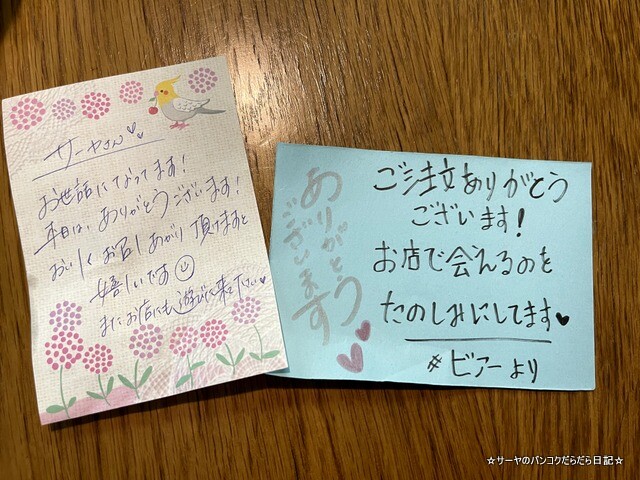 サーヤさん♡♡
お世話になってます!
本日は、ありがとうございます!
おいしくお召しあがり頂けますと
嬉しいです☺
またお店にも遊びに来て下さい♡
ありがとう
ございます
ご注文ありがとう
ございます!
お店で会えるのを
たのしみにしてます♥
#ビアーより
☆サーヤのバンコクだらだら日記☆